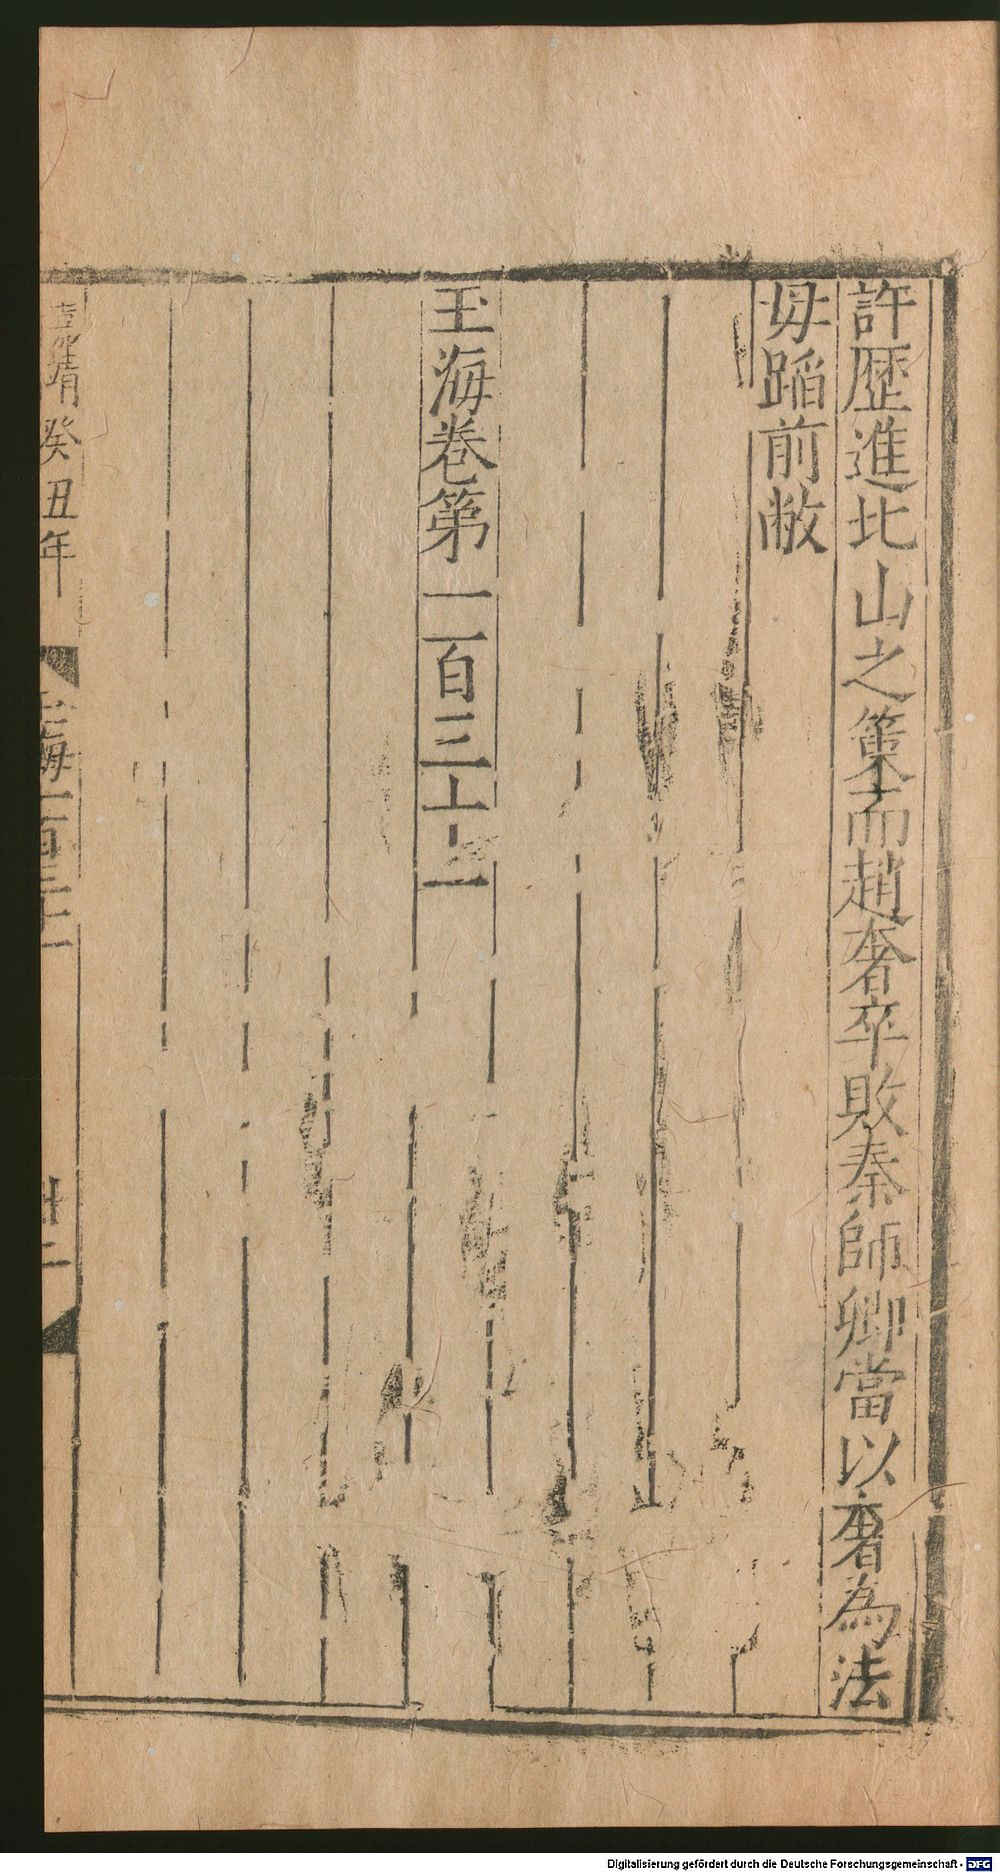 許歷進北山之策而趙奢卒敗秦師卿當以奢為法
毋蹈前敝
玉海卷第一百三十二
嘉靖癸丑年
玉海一百三十二
卅二
Digitalisierung gefördert durch die Deutsche Forschungsgemeinschaft - DFG